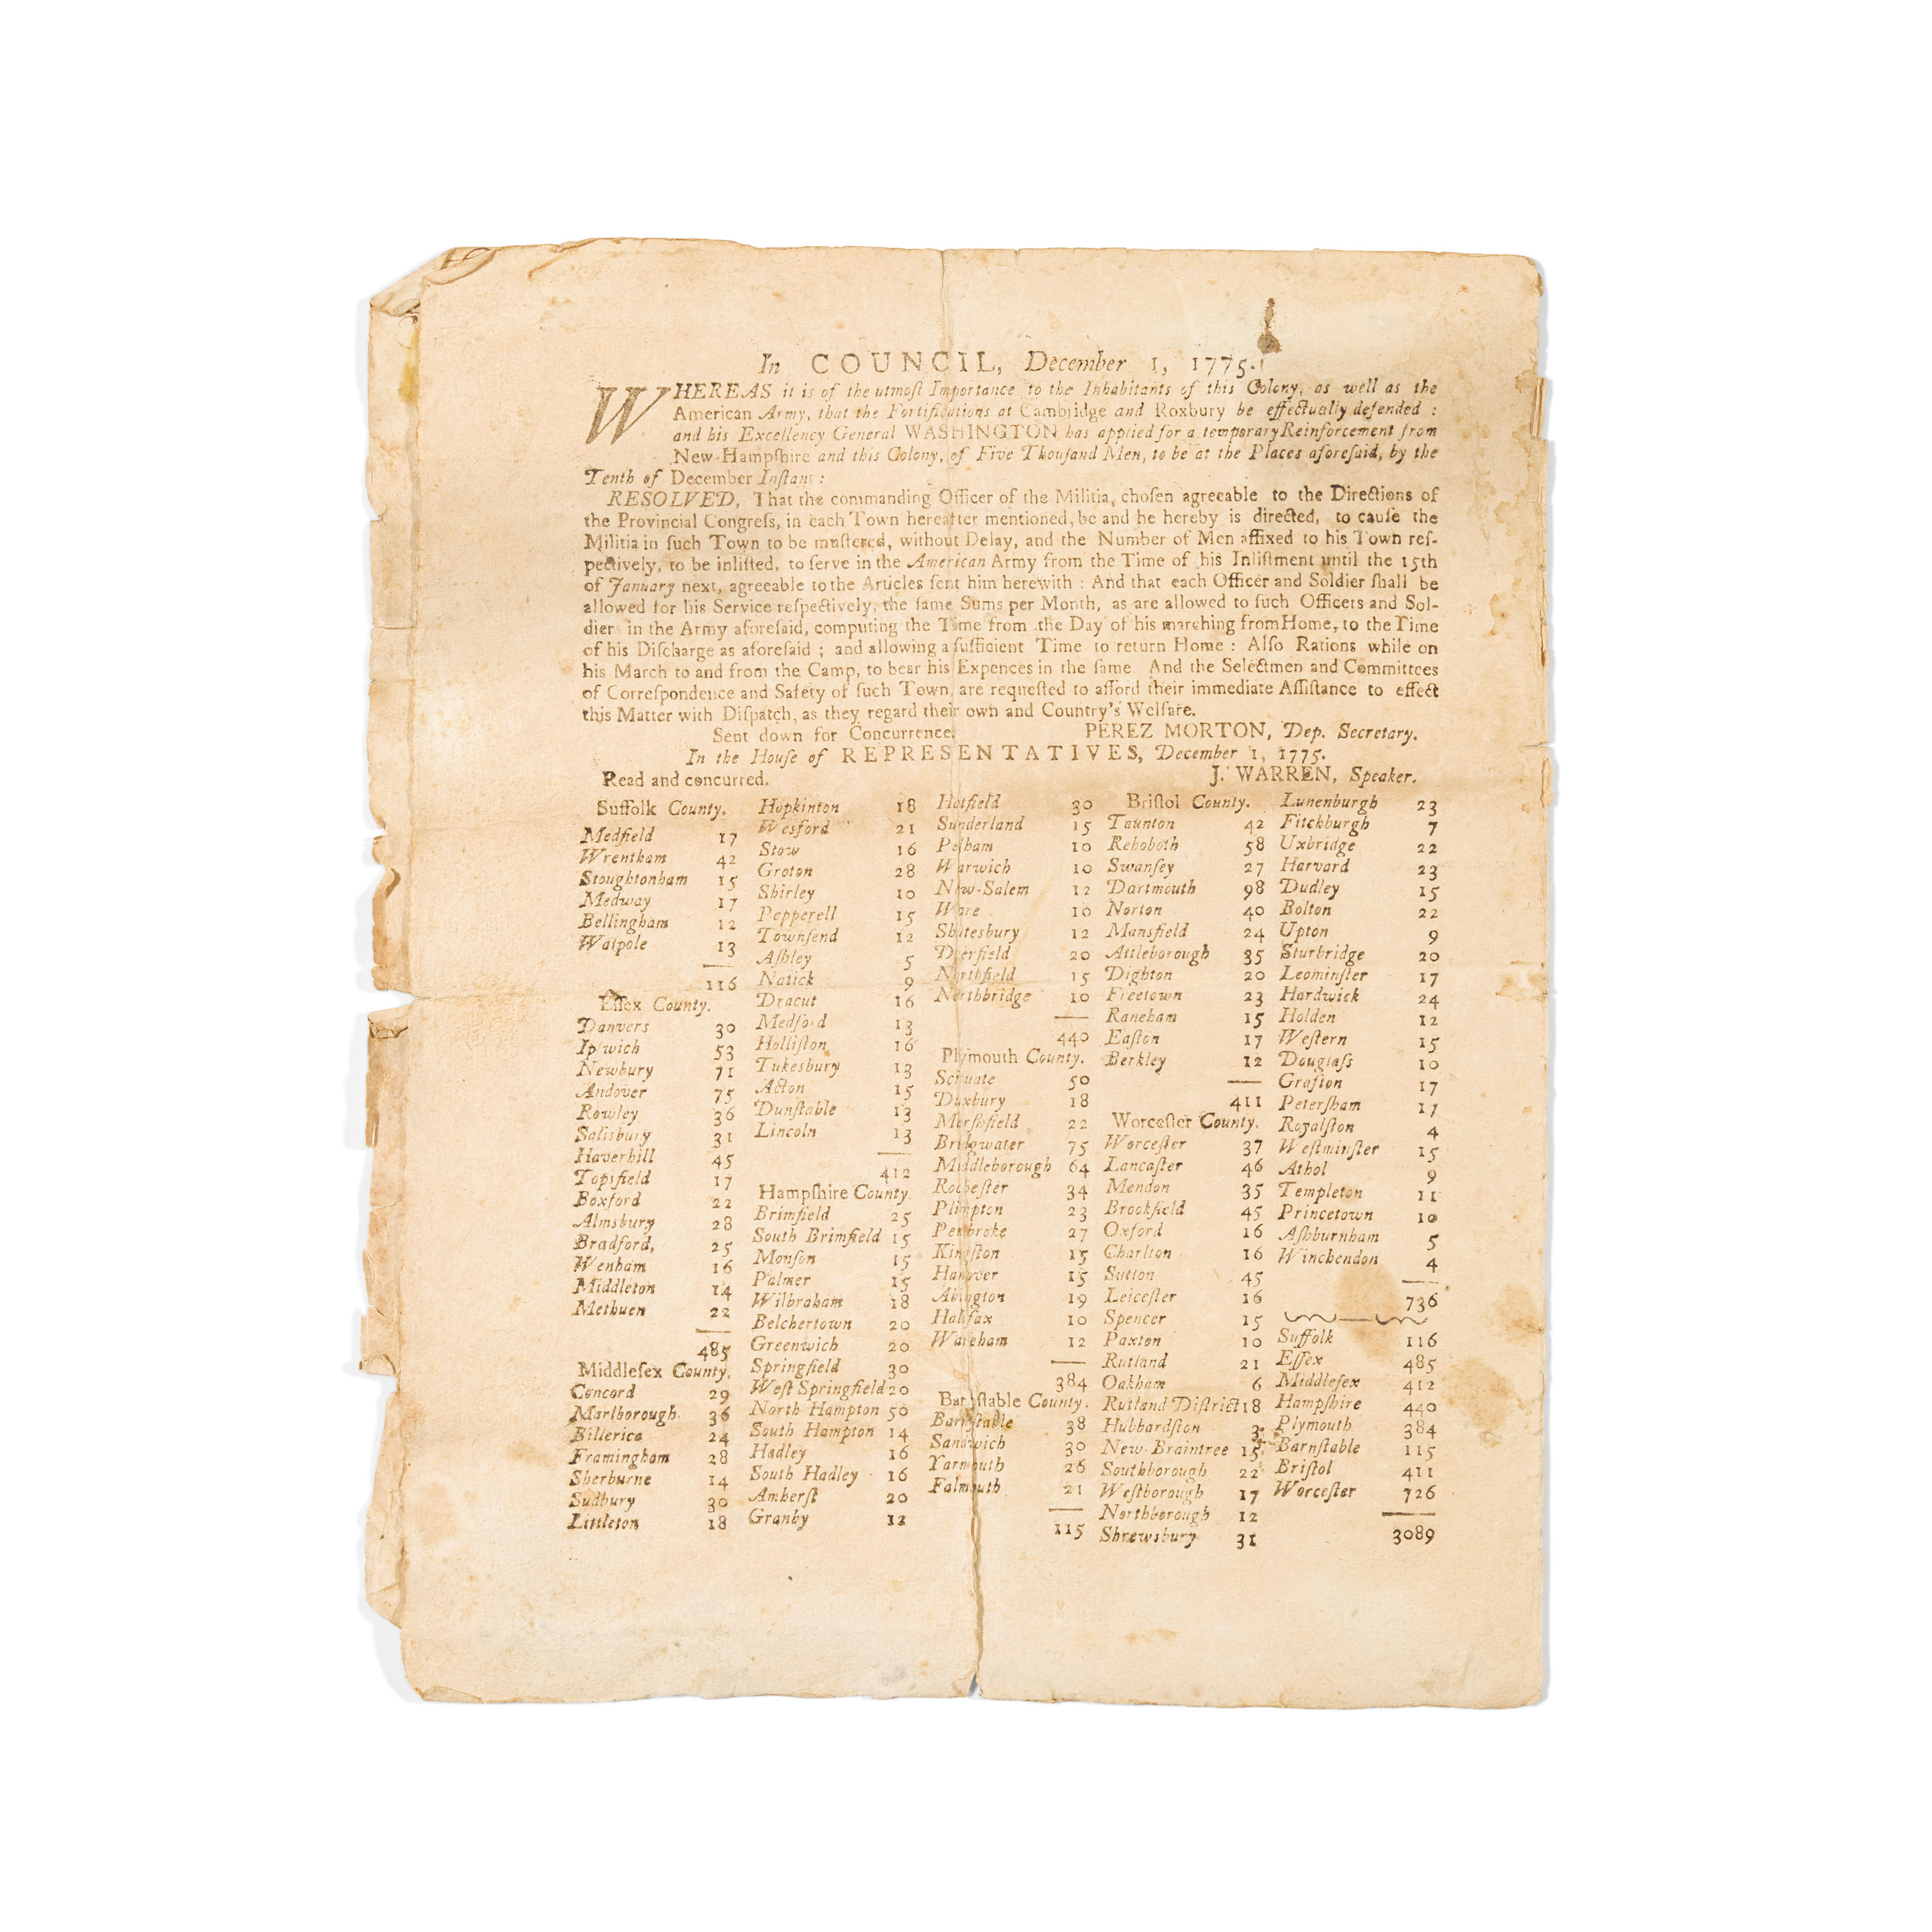 In COUNCIL, December 1, 1775.
WHEREAS it is of the utmoſt Importance to the Inhabitants of this Colony, as well as the
American Army, that the Fortifications at Cambridge and Roxbury be effectually defended :
and his Excellency General WASHINGTON has applied for a temporary Reinforcement from
New-Hampſhire and this Colony, of Five Thouſand Men, to be at the Places aforeſaid, by the
Tenth of December Inſtant :
RESOLVED, That the commanding Officer of the Militia, choſen agreeable to the Directions of
the Provincial Congreſs, in each Town hereafter mentioned, be and he hereby is directed, to cauſe the
Militia in ſuch Town to be muſtered, without Delay, and the Number of Men affixed to his Town reſ-
pectively, to be inliſted, to ſerve in the American Army from the Time of his Inliſtment until the 15th
of January next, agreeable to the Articles ſent him herewith : And that each Officer and Soldier ſhall be
allowed for his Service reſpectively, the ſame Sums per Month, as are allowed to ſuch Officers and Sol-
diers in the Army aforeſaid, computing the Time from the Day of his marching from Home, to the Time
of his Diſcharge as aforeſaid ; and allowing a ſufficient Time to return Home : Alſo Rations while on
his March to and from the Camp, to bear his Expences in the ſame. And the Selectmen and Committees
of Correſpondence and Safety of ſuch Town, are requeſted to afford their immediate Aſſiſtance to effect
this Matter with Diſpatch, as they regard their own and Country's Welfare.
Sent down for Concurrence. PEREZ MORTON, Dep. Secretary.
In the Houſe of REPRESENTATIVES, December 1, 1775.
Read and concurred. J. WARREN, Speaker.
Suffolk County.
Medfield 17
Wrentham 42
Stoughtonham 15
Medway 17
Bellingham 12
Walpole 13
116
Eſſex County.
Danvers 30
Ipſwich 53
Newbury 71
Andover 75
Rowley 36
Salisbury 31
Haverhill 45
Topsfield 17
Boxford 22
Almsbury 28
Bradford, 25
Wenham 16
Middleton 14
Methuen 22
485
Middleſex County.
Concord 29
Marlborough 36
Billerica 24
Framingham 28
Sherburne 14
Sudbury 30
Littleton 18
Hopkinton 18
Wesford 21
Stow 16
Groton 28
Shirley 10
Pepperell 15
Townſend 12
Aſhley 5
Natick 9
Dracut 16
Medford 13
Holliſton 16
Tukesbury 13
Acton 15
Dunſtable 13
Lincoln 13
412
Hampſhire County.
Brimfield 25
South Brimfield 15
Monſon 15
Palmer 15
Wilbraham 18
Belchertown 20
Greenwich 20
Springfield 30
Weſt Springfield 20
North Hampton 50
South Hampton 14
Hadley 16
South Hadley 16
Amherſt 20
Granby 12
Hatfield 30
Sunderland 15
Pelham 10
Warwich 10
New-Salem 12
Ware 10
Shutesbury 12
Deerfield 20
Northfield 15
Northbridge 10
440
Plymouth County.
Scituate 50
Duxbury 18
Marſhfield 22
Bridgwater 75
Middleborough 64
Rocheſter 34
Plimpton 23
Pembroke 27
Kingſton 15
Hanover 15
Abington 19
Halifax 10
Wareham 12
384
Barnſtable County.
Barnſtable 38
Sandwich 30
Yarmouth 26
Falmouth 21
115
Briſtol County.
Taunton 42
Rehoboth 58
Swanſey 27
Dartmouth 98
Norton 40
Mansfield 24
Attleborough 35
Dighton 20
Freetown 23
Raneham 15
Eaſton 17
Berkley 12
411
Worceſter County.
Worceſter 37
Lancaſter 46
Mendon 35
Brookfield 45
Oxford 16
Charlton 16
Sutton 45
Leiceſter 16
Spencer 15
Paxton 10
Rutland 21
Oakham 6
Rutland Diſtrict 18
Hubbardſton 3
New-Braintree 15
Southborough 22
Weſtborough 17
Northborough 12
Shrewsbury 31
Lunenburgh 23
Fitchburgh 7
Uxbridge 22
Harvard 23
Dudley 15
Bolton 22
Upton 9
Sturbridge 20
Leominſter 17
Hardwick 24
Holden 12
Weſtern 15
Douglaſs 10
Grafton 17
Peterſham 17
Royalſton 4
Weſtminſter 15
Athol 9
Templeton 11
Princetown 10
Aſhburnham 5
Winchendon 4
736
Suffolk 116
Eſſex 485
Middleſex 412
Hampſhire 440
Plymouth 384
Barnſtable 115
Briſtol 411
Worceſter 726
3089